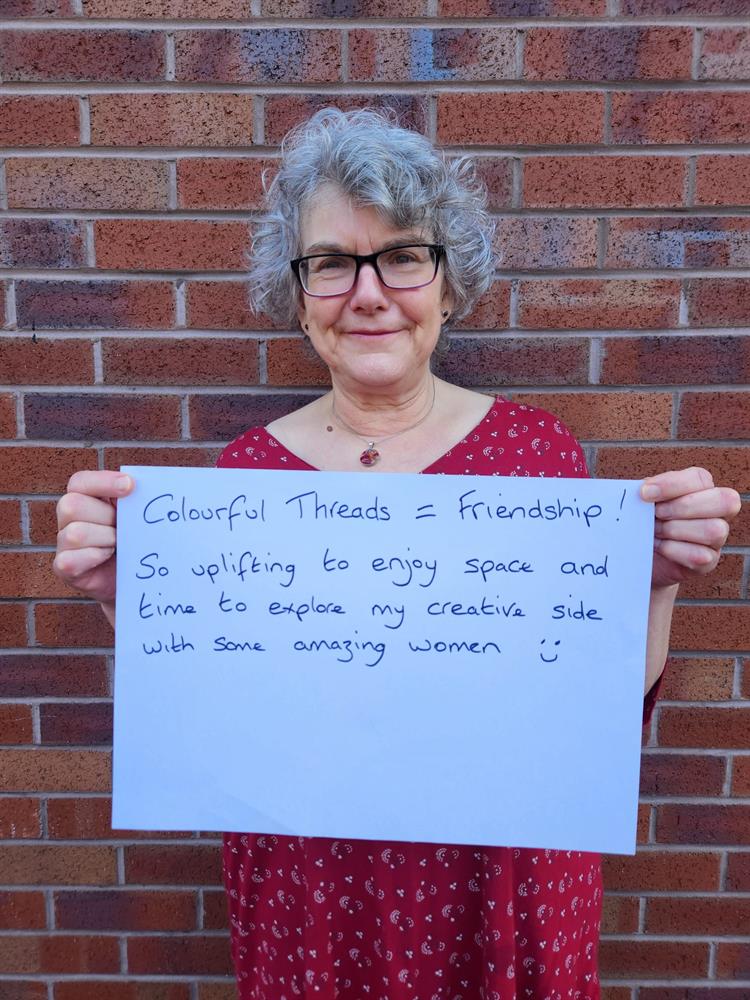 Colourful Threads = Friendship!
So uplifting to enjoy space and
time to explore my creative side
with some amazing women :)